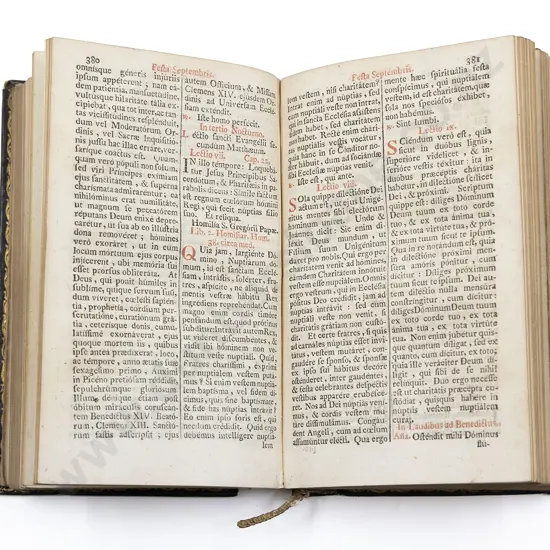 380
Festa Septembris.
omnisque generis injuriis
ipsum appeterent; nam ea-
dem patientia, mansuetudine,
vultusque hilaritate ultra exi-
tas vicissitudines, perferen-
dum vel Moderatorum Or-
dinis, vel Sacræ Inquisitio-
nis jussu ab illo mare exerce,
verique coactus est. Quam-
quam verò populi non solum,
sed viri Principes eximiam
ejus sanctitatem, & superna
charismata admirarentur; ea
nihilominus erat humilitate,
magnum se peccatorem
reputans Deum enixè depre-
caretur, ut sua ab eo illustria
dona removeret; homines
verò exoraret, ut in eum
locum mortuum ejus corpus
injicerent, ubi memoria sui
esset prorsus obliterata. At
Deus, qui ponit humiles in
sublime, servum suum,
dum viveret, cœlesti sapien-
tia, prophetia, cordium per-
scrutatione, curationum
gratia, ceterisque donis, cumu-
latissimè exornaverat, ejus
quoque mortem iis, quibus
ipse antea prædixerat, loco,
ac tempore, anno ætatis suæ
sexagesimo primo, Auximi
in Piceno pretiosam reddidit,
sepulchrumque gloriosum
Illum denique etiam
obitum miraculis coruscan-
tem Benedictus XIV. Beato-
rum, Clemens XIII. Sancto-
rum fastis adscripsit; ejus
autem Officium, & Missam
Clemens XIV. ejusdem Or-
dinis ad Universam Eccle-
siam extendit.
Iste homo perfecit.
In tertio Nocturno.
Lectio sancti Evangelii se-
cundùm Matthæum.
Lectio vij. Cap. 22.
IN illo tempore: Loqueba-
tur Jesus Principibus Sa-
cerdotum, & Pharisæis in pa-
rabolis dicens: Simile factum
est regnum cœlorum homini
Regi, qui fecit nuptias filio
suo. Et reliqua.
Homilia S. Gregórii Papæ.
Lib. 2. Homiliar. Hom.
38. circa med.
QUia jam, largiente Dó-
mino, Nuptiarum do-
mum, id est sanctam Ecclé-
siam, intrastis, solerter, fra-
tres, aspicite; ne aliquid de
mentis vestræ hábitu Rex
ingrédiens reprehéndat. Cum
magno enim cordis timore
pensándum est, quod prótinus
subinfertur: Intrávit autem Rex,
ut vidéret discumbéntes, &
vidit ibi hominem non vestitum
veste nuptiali. Quid,
Fratres charissimi, exprimi
per nuptialem vestem putá-
mus? Si enim vestem nuptiá-
lem baptísma, vel fidem di-
cimus, quis sine baptísmate,
& fide has nuptias intrávit?
Eo enim ipso foris est, qui
necdum credidit. Quid ergo
debémus intelligere nuptiá-
lem
Festa Septembris.
381
lem vestem, nisi charitátem?
Intrat enim ad nuptias, sed
cum nuptiáli veste non intrat,
qui in sancta Ecclésia assistens
fidem habet, sed charitátem
non habet. Rectè enim charitas
nuptialis vestis vocatur,
quia hanc in se Cónditor noster
hábuit, dum ad sociándæ
sibi Ecclésiæ nuptias venit.
Iste est, qui ante.
Lectio viij.
SOla quippe dilectióne Dei
actum est, ut ejus Unigé-
nitus mentes sibi electórum
hóminum uniret. Unde &
Joánnes dicit: Sic enim di-
léxit Deus mundum, ut
Fílium suum Unigénitum
daret pro nobis. Qui ergo per
charitátem venit ad hómines,
eámdem Charitátem innótuit
vestem esse nuptiálem. Om-
nis ergo, qui in Ecclésia
pósitus Deo crédidit, jam ad
nuptias intrávit: sed cum
nuptiáli veste non venit, si
charitátis grátiam non custó-
dit. Et certè fratres, si quis
ad carnáles nuptias esset invi-
tátus, vestem mutáret, con-
gaudére se sponso, & sponsæ
ex ipso sui hábitus decóre
osténderet, inter gaudéntes,
& festa celebrántes despéctis
véstibus apparére erubésce-
ret. Nos ad Dei nuptias véni-
mus, & cordis vestem mu-
táre dissimulámus. Congáu-
dent Angeli, cum ad cœlum
assumúntur elécti. Qua ergo
mente hæc spirituália festa
conspícimus, qui nuptiálem
vestem, id est charitátem, quæ
sola nos speciósos éxhibet,
non habémus.
Sint lumbi.
Lectio ix.
SCiéndum verò est, quia
sicut in duóbus lignis,
superióre vidélicet, & in-
ferióre vestis téxitur: ita in
duóbus præcéptis cháritas
habétur, in dilectióne scílicet
Dei, & in dilectióne próximi.
Scriptum est enim: Díliges Dóminum
Deum tuum ex toto corde
tuo, & ex tota ánima tua,
& ex tota virtúte tua, & pró-
ximum tuum sicut te ipsum.
Qua in re notándum est, quia
in dilectióne próximi mensúra
amóris pónitur, cum
dicitur: Díliges próximum
tuum sicut te ipsum: Dei au-
tem diléctio nulla mensúra
constríngitur, cum dícitur:
díliges Dóminum Deum tuum
ex toto corde tuo, & ex tota
ánima tua, ex tota virtúte
tua. Non enim jubétur quis-
que quantum díligat, sed ex
quanto, cum dícitur, ex toto;
quia ille veráciter Deum dí-
ligit, qui sibi de se nihil
relínquit. Duo ergo necesse
est ut charitátis præcépta cu-
stódiat, quisquis habére in
núptiis vestem nuptiálem
curat.
In Laudibus ad Benedictus
Aña. Osténdit mihi Dóminus
su-